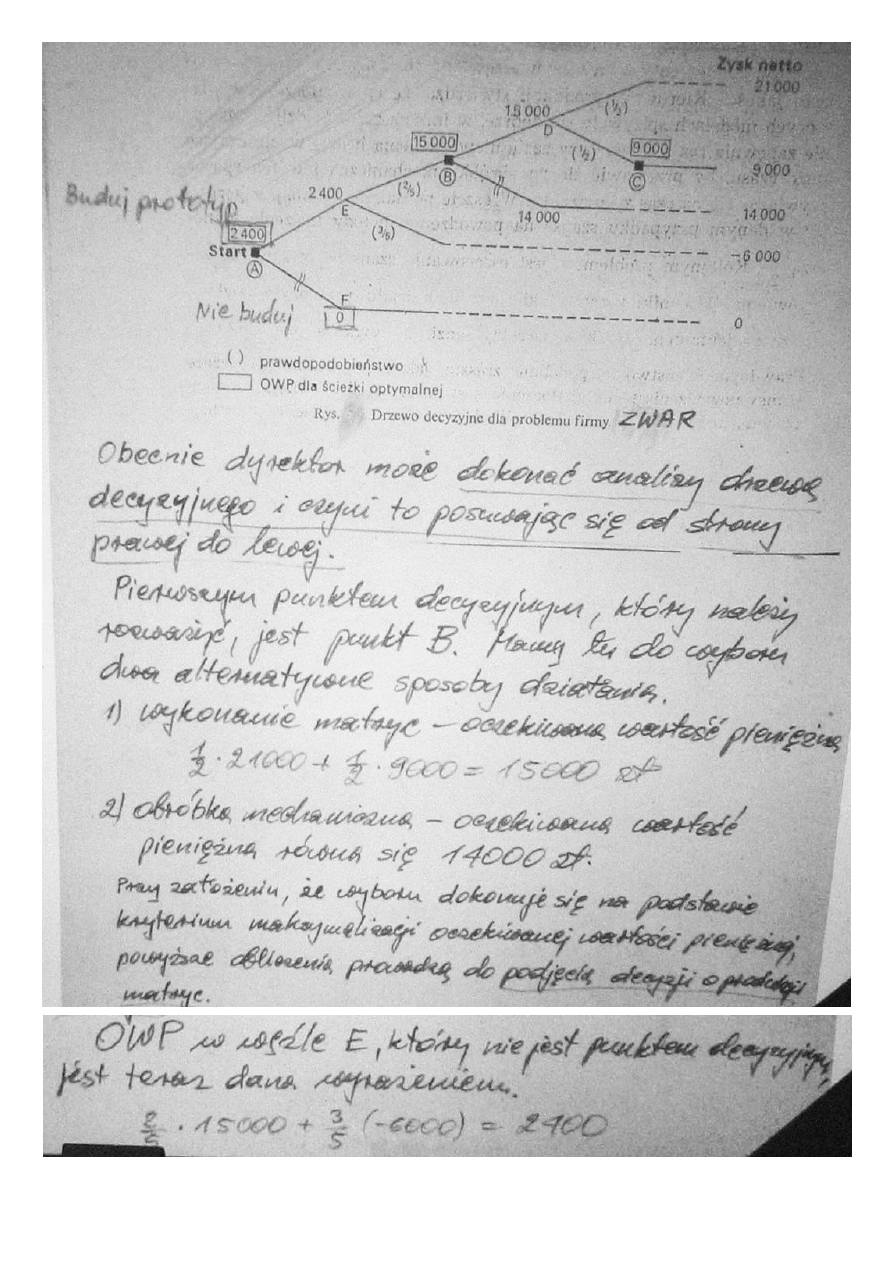 Zysk netto
21 000
15 000
(½)
D
15 000
(½)
9 000
9 000
B
C
2 400
(⅖)
Buduj prototyp
E
14 000
14 000
2 400
(⅗)
Start
−6 000
A
F
Nie buduj
0
0
( ) prawdopodobieństwo
OWP dla ścieżki optymalnej
Rys. Drzewo decyzyjne dla problemu firmy ZWAR
Obecnie dyrektor może dokonać analizy drzewa
decyzyjnego i czyni to posuwając się od strony
prawej do lewej.
Pierwszym punktem decyzyjnym, który należy
rozważyć, jest punkt B. Mamy tu do wyboru
dwa alternatywne sposoby działania.
1) wykonanie matryc – oczekiwana wartość pieniężna
1/2 · 21000 + 1/2 · 9000 = 15000 zł
2) obróbka mechaniczna – oczekiwana wartość
pieniężna równa się 14000 zł.
Przy założeniu, że wyboru dokonuje się na podstawie
kryterium maksymalizacji oczekiwanej wartości pieniężnej,
powyższe obliczenia prowadzą do podjęcia decyzji o produkcji
matryc.
OWP w węźle E, który nie jest punktem decyzyjnym,
jest teraz dana wyrażeniem.
2/5 · 15000 + 3/5 (-6000) = 2400